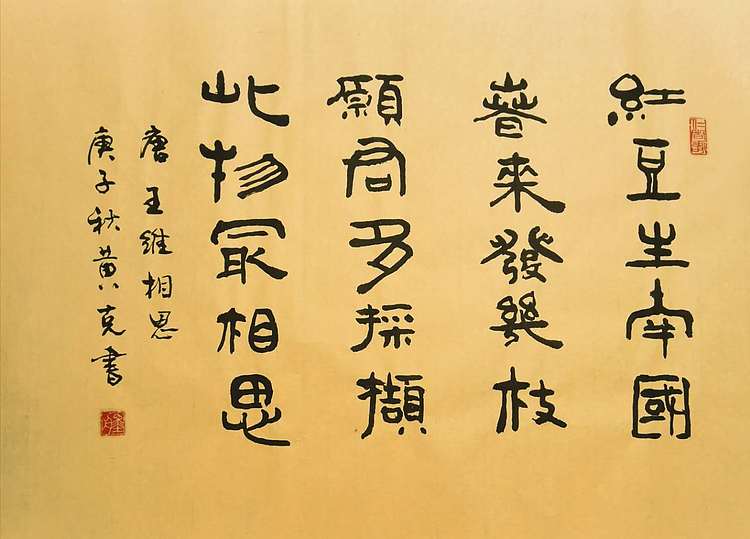 紅豆生南國
春來發幾枝
願君多採擷
此物冣相思
唐王維相思
庚子秋黄克書